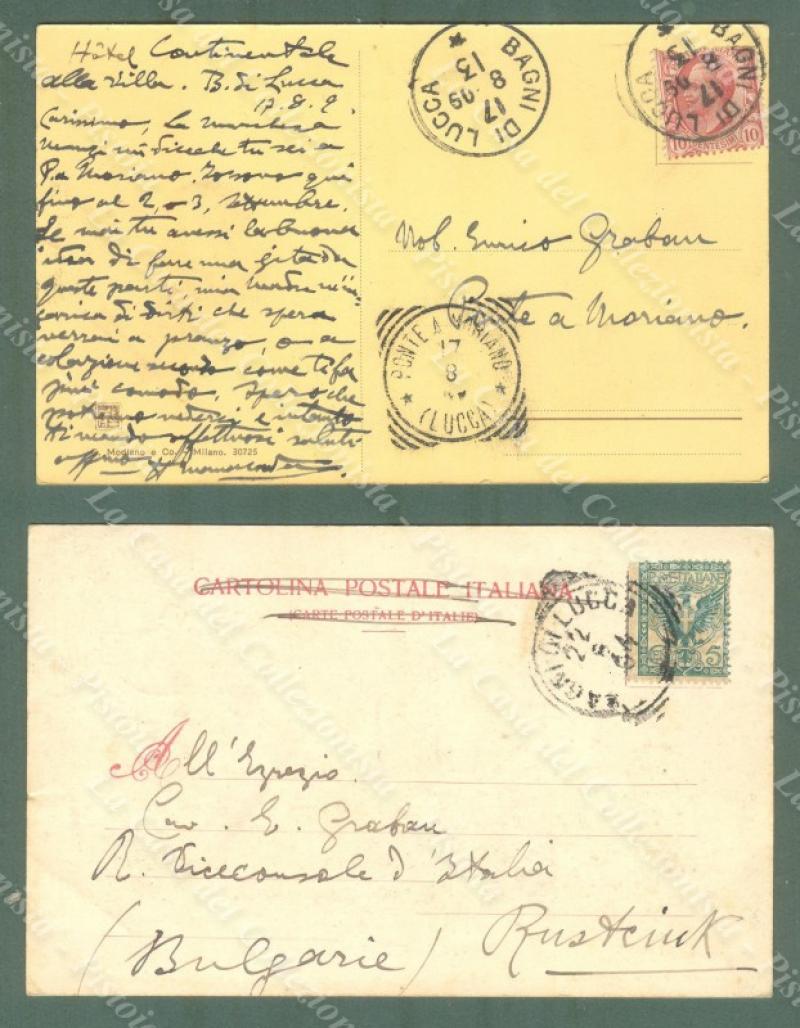 Hôtel Continentale
alla Villa. B. di Lucca
17.8.9
Carissimo, la marchesa
Mansi mi dice che tu sei a
P. a Moriano. Io sono qui
fino al 2, o 3, settembre.
Se mai tu avessi la buona
idea di fare una gita da
queste parti, mia madre m'in-
carica di dirti che spera
verrai a pranzo, o a
colazione secondo come ti fa
più comodo, spero che
potremo vederci e intanto
ti mando affettuosi saluti
aff.mo
Modiano e Co. - Milano. 30725
BAGNI DI LUCCA
17 8 09
13
BAGNI DI LUCCA
17 8 09
13
10 CENTESIMI 10
Nob. Enrico Grabau
Ponte a Moriano.
PONTE A MORIANO
17
8
(LUCCA)
CARTOLINA POSTALE ITALIANA
(CARTE POSTALE D'ITALIE)
BAGNI DI LUCCA
22
04
POSTE ITALIANE
5
All'Egregio
Cav. E. Grabau
R. Viceconsole d'Italia
Rustciuk
(Bulgarie)
La Casa del Collezionista - Pistoia